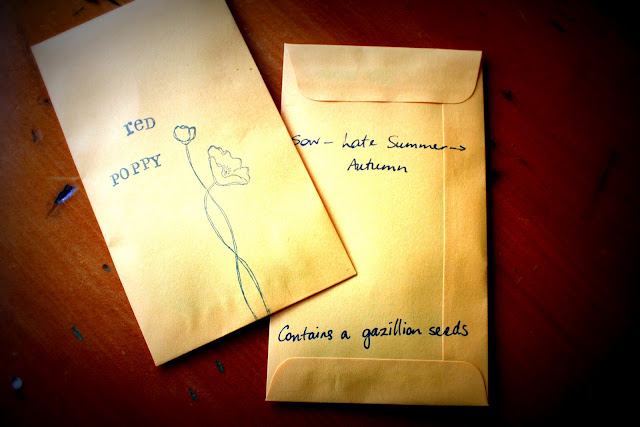 reD
POPPY
Sow - Late Summer →
Autumn
Contains a gazillion seeds